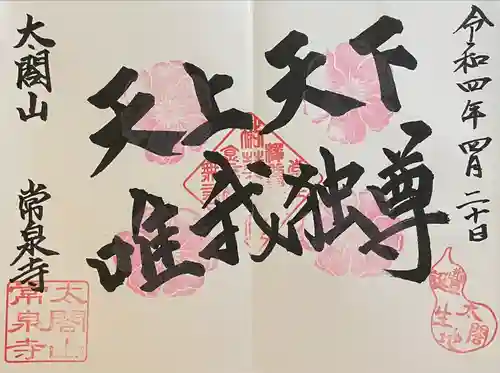 令和四年四月二十日
天上天下
唯我独尊
太閤山 常泉寺
太閤山
常泉寺
豊太閤
誕生地